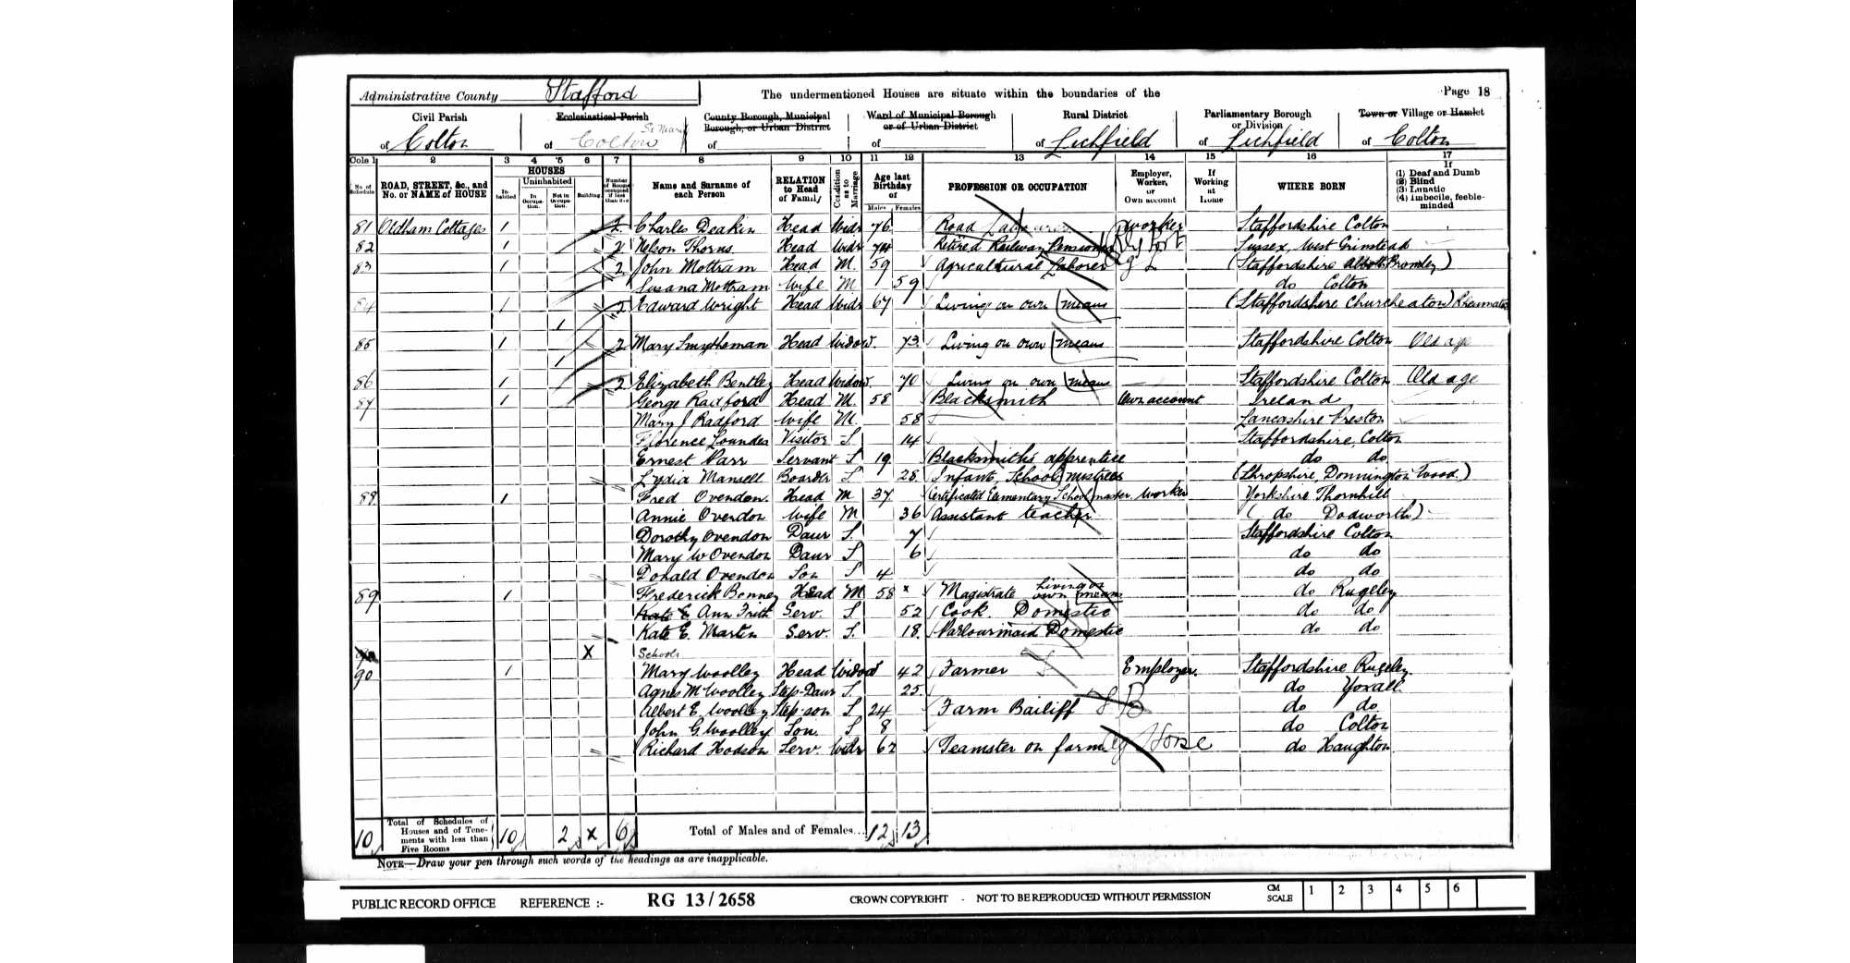 Administrative County Stafford The undermentioned Houses are situate within the boundaries of the Page 18
Civil Parish Ecclesiastical Parish County Borough, Municipal Borough, or Urban District Ward of Municipal Borough or of Urban District Rural District Parliamentary Borough or Division Town or Village or Hamlet
of Colton of Colton St Mary of of of Lichfield of Lichfield of Colton
Cols 1 2 3 4 5 6 7 8 9 10 11 12 13 14 15 16 17
No. of Schedule ROAD, STREET, &c., and No. or NAME of HOUSE HOUSES Inhabited Uninhabited In Occupation. Not in Occupation. Building Number of Rooms occupied if less than five Name and Surname of each Person RELATION to Head of Family Condition as to Marriage Age last Birthday of Males Females PROFESSION OR OCCUPATION Employer, Worker, or Own account If Working at Home WHERE BORN If (1) Deaf and Dumb (2) Blind (3) Lunatic (4) Imbecile, feeble-minded
81 Oldham Cottages 1 2 Charles Deakin Head Widr 76 Road worker Staffordshire Colton
82 1 2 Nelson Thorns Head Widr 74 Retired Railway Pensioner Sussex, West Grinstead
83 1 2 John Mottram Head M. 59 Agricultural Laborer (Staffordshire Abbott Bromley)
Susana Mottram Wife M 59 do Colton
84 1 2 Edward Wright Head Widr 67 Living on own means (Staffordshire Churcheaton) Rheumatic
1
85 1 2 Mary Smytheman Head Widow. 73 Living on own means Staffordshire Colton Old age
1
86 1 2 Elizabeth Bentley Head Widow. 70 Living on own means Staffordshire Colton Old age
87 1 George Radford Head M. 58 Blacksmith Own account Ireland
Mary J Radford Wife M. 58 Lancashire Preston
Florence Lowndes Visitor S 14 Staffordshire, Colton
Ernest Parr Servant S 19 Blacksmiths apprentice do do
Lydia Mansell Boarder S 28 Infants School Mistress (Shropshire, Donnington Wood.)
88 1 Fred Ovendon. Head M 37 Certificated Elementary School master Worker Yorkshire Thornhill
Annie Ovendon Wife M 36 Assistant teacher ( do Dodworth)
Dorothy Ovendon Daur S. 7 Staffordshire Colton
Mary W Ovendon Daur S 6 do do
Donald Ovendon Son S 4 do do
89 1 Frederick Bonney Head M 58 x Magistrate Living on own means do Rugeley
Kate E Ann Frith Serv. S 52 Cook Domestic do do
Kate E. Martin Serv. S. 18 Parlourmaid Domestic do do
X Schools
90 1 Mary Woolley Head Widow 42 Farmer Employer. Staffordshire Rugeley
Agnes M Woolley Step-Daur S. 25 do Yoxall
Albert E. Woolley Step-son S 24 Farm Bailiff do do
John G Woolley Son. S 8 do Colton
Richard Hodson Serv. Widr 62 Teamster on farm Horse do Haughton
10 Total of Schedules of Houses and of Tenements with less than Five Rooms 10 2 x 6 Total of Males and of Females... 12 13
NOTE—Draw your pen through such words of the headings as are inapplicable.
PUBLIC RECORD OFFICE REFERENCE :- RG 13/2658 CROWN COPYRIGHT - NOT TO BE REPRODUCED WITHOUT PERMISSION CM SCALE 1 2 3 4 5 6